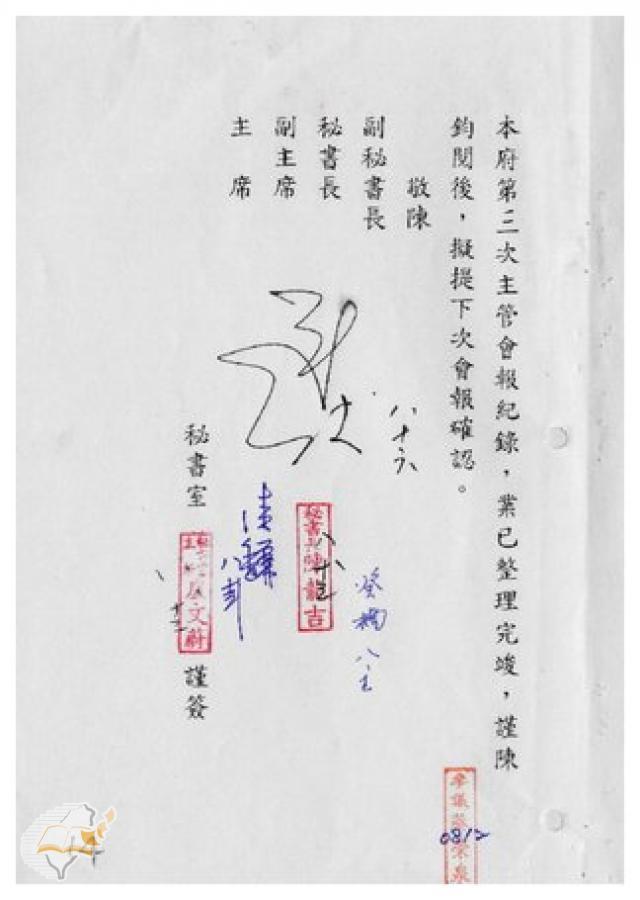 本府第三次主管會報紀錄，業已整理完竣，謹陳
鈞閱後，擬提下次會報確認。
敬陳
副秘書長
秘書長
副主席
主席
八十六
秘書長陳龍吉
秘書室
文蔚
謹簽
參議蔡宗泉
0812